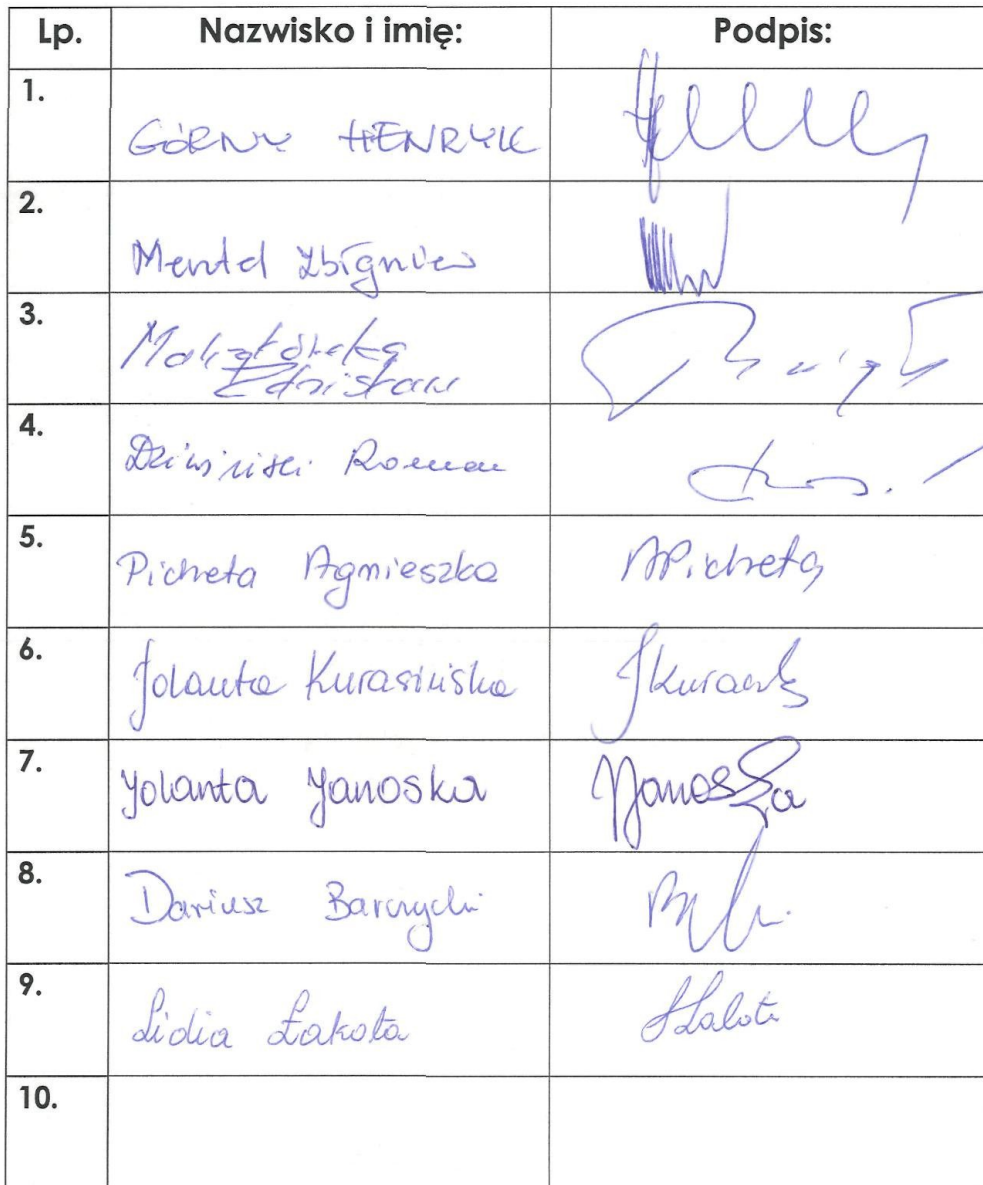 Lp. Nazwisko i imię: Podpis:
1. GÓRNY HENRYK
2. Mentel Zbigniew
3.
Zdzisław
4. Roman
5. Picheta Agnieszka APicheta
6. Jolanta Kurasińska
7. Jolanta Janoska Janoska
8. Dariusz Barczycki
9. Lidia Łakota
10.